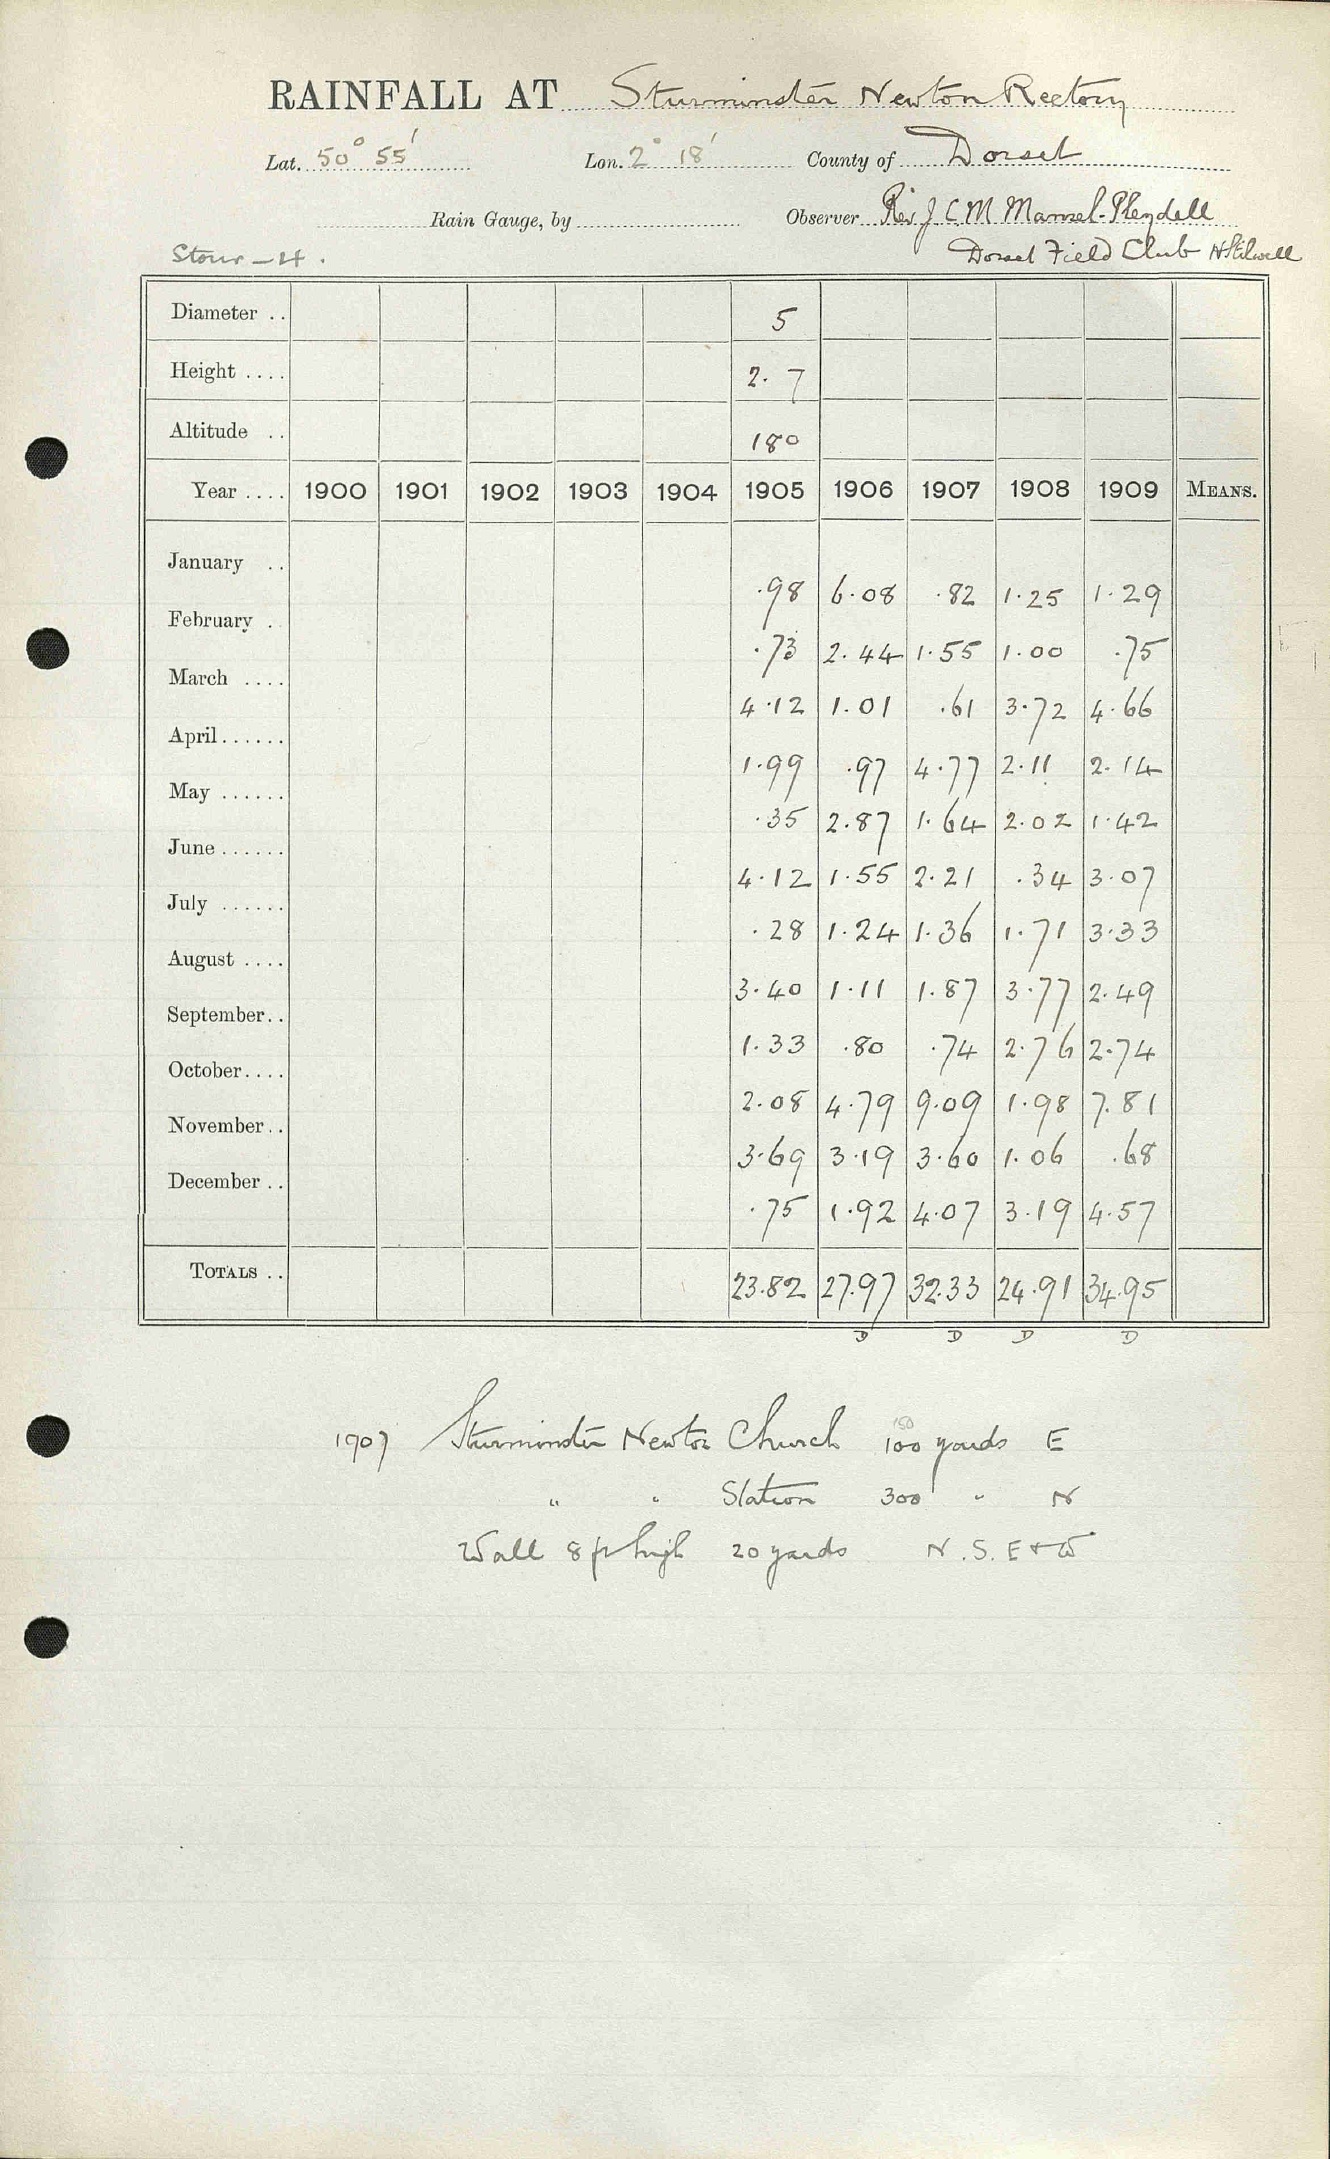 RAINFALL AT Sturminster Newton Rectory
Lat. 50° 55' Lon. 2° 18' County of Dorset
Rain Gauge, by Observer Rev J C M Mansel-Pleydell
Stour - 4. Dorset Field Club N Stilwell
Diameter .. 5
Height .... 2. 7
Altitude .. 180
Year .... 1900 1901 1902 1903 1904 1905 1906 1907 1908 1909 MEANS.
January .. .98 6.08 .82 1.25 1.29
February . .73 2.44 1.55 1.00 .75
March .... 4.12 1.01 .61 3.72 4.66
April...... 1.99 .97 4.77 2.11 2.14
May ...... .35 2.87 1.64 2.02 1.42
June ...... 4.12 1.55 2.21 .34 3.07
July ...... .28 1.24 1.36 1.71 3.33
August .... 3.40 1.11 1.87 3.77 2.49
September.. 1.33 .80 .74 2.76 2.74
October.... 2.08 4.79 9.09 1.98 7.81
November.. 3.69 3.19 3.60 1.06 .68
December .. .75 1.92 4.07 3.19 4.57
TOTALS .. 23.82 27.97 32.33 24.91 34.95
D D D D
1907 Sturminster Newton Church 100 yards E
150
" " Station 300 " N
Wall 8 ft high 20 yards N. S. E + W